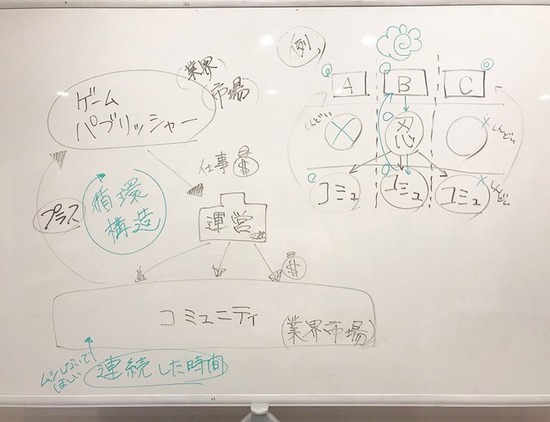 業界
市場
ゲーム
パブリッシャー
仕事 $
運営
プラス
循環
構造
$
コミュニティ
業界市場
ムシしないで
ほしい
連続した時間
例
A B C
しんどい × 忍 ×しんどい
コミュ コミュ コミュ ×しんどい